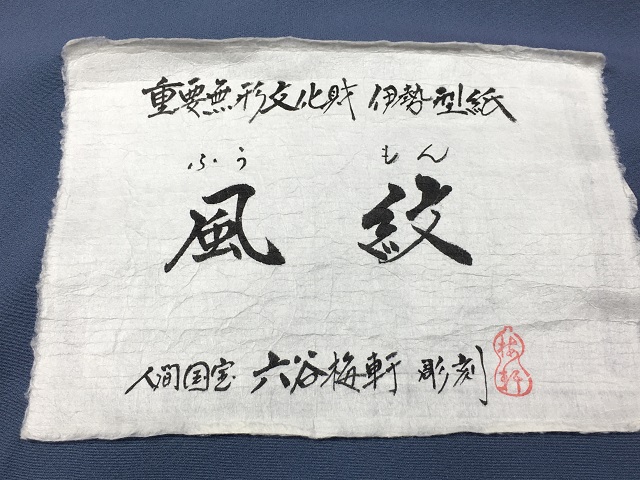 重要無形文化財 伊勢型紙
ふう もん
風 紋
人間国宝 六谷梅軒 彫刻
梅軒